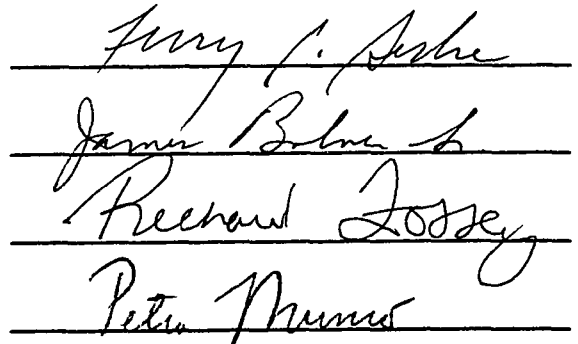 Terry G.
James Bolner Sr
Richard Fossey
Petra Munro